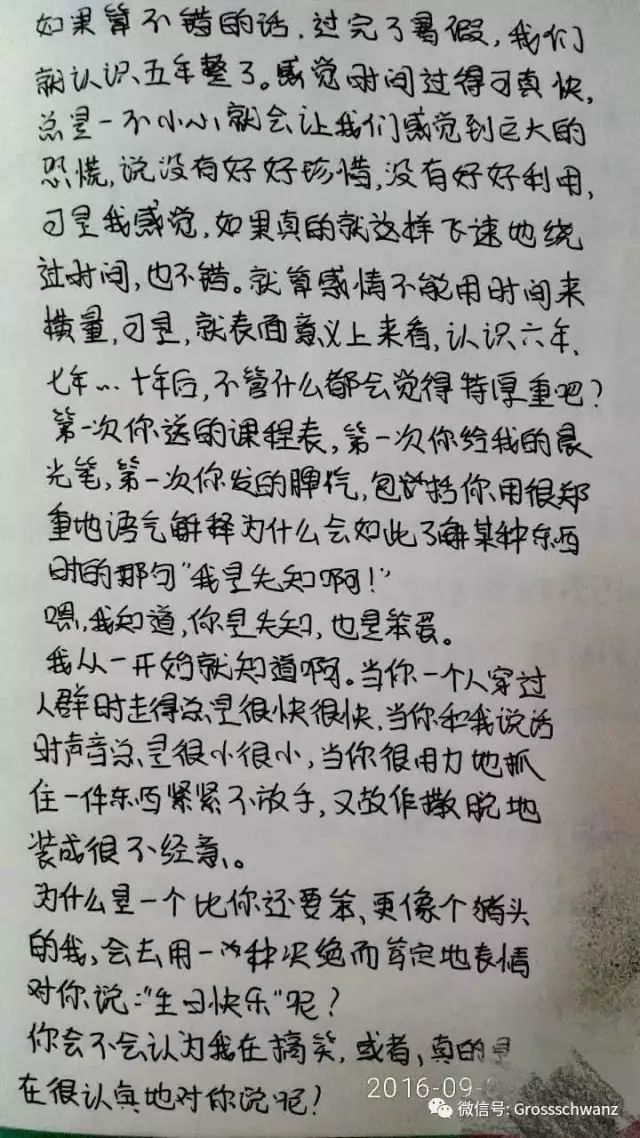 如果算不错的话，过完了暑假，我们
就认识五年整了。感觉时间过得可真快，
总是一不小心就会让我们感觉到巨大的
恐慌，说没有好好珍惜，没有好好利用，
可是我感觉，如果真的就这样飞速地绕
过时间，也不错。就算感情不能用时间来
横量，可是，就表面意义上来看，认识六年、
七年…十年后，不管什么都会觉得特厚重吧？
第一次你送的课程表，第一次你给我的晨
光笔，第一次你发的脾气，包括你用很郑
重地语气解释为什么会如此了解某种东西
时的那句“我是先知啊！”
喂，我知道，你是先知，也是笨蛋。
我从一开始就知道啊。当你一个人穿过
人群时走得总是很快很快，当你和我说话
时声音总是很小很小，当你很用力地抓
住一件东西紧紧不放手，又故作撒脱地
装成很不经意。
为什么是一个比你还要笨、更像个猪头
的我，会去用一种决绝而肯定地表情
对你说：“生日快乐”呢？
你会不会认为我在搞笑，或者、真的是
在很认真地对你说呢！
2016-09-
微信号: Grossschwanz